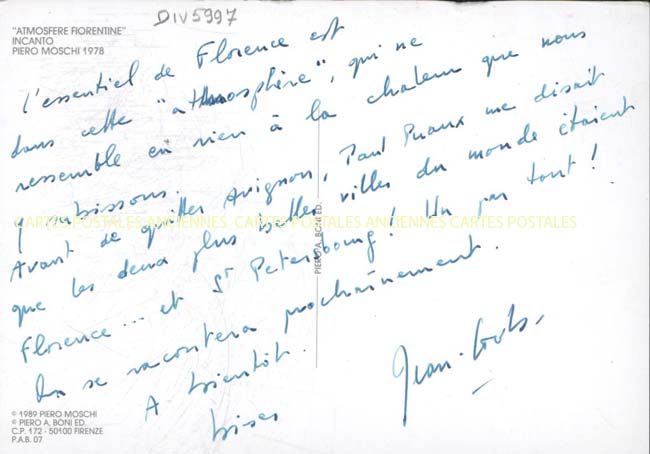 DIV5997
"ATMOSFERE FIORENTINE"
INCANTO
PIERO MOSCHI 1978
L'essentiel de Florence est
dans cette "atmosphère", qui ne
ressemble en rien à la chaleur que nous
subissons.
Avant de quitter Avignon, Paul Puaux me disait
que les deux plus belles villes du monde étaient
Florence... et St Petersbourg! Un peu tout!
On se racontera prochainement.
A bientôt.
bises
Jean-Louis.
CARTES POSTALES ANCIENNES CARTES POSTALES ANCIENNES CARTES POSTALES
PIERO A. BONI ED.
© 1989 PIERO MOSCHI
© PIERO A. BONI ED.
C.P. 172 - 50100 FIRENZE
P.A.B. 07